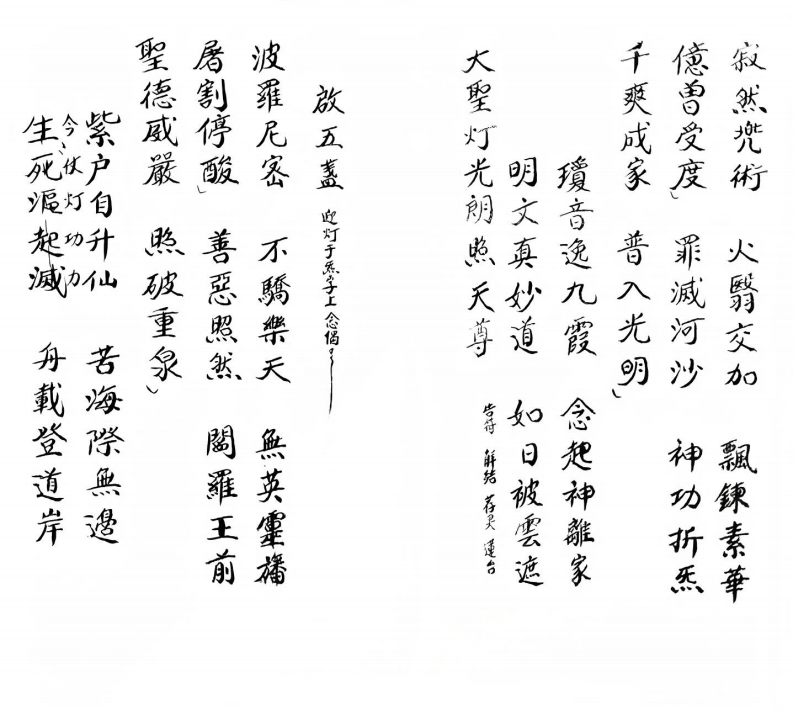 寂然兠術 火翳交加 飄鍊素華
億曽受度 罪滅河沙 神功折炁
千爽成家 普入光明
瓊音逸九霞 念起神離家
明文真妙道 如日被雲遮
大聖灯光朗照天尊 告符 解結 荐灵 運台
啟五盞 迎灯于炁字上念偈
波羅尼密 不驕樂天 無英靈旛
屠割停酸 善惡照然 閻羅王前
聖德威嚴 照破重泉
紫户自升仙 苦海際無邊
今仗灯功力
生死漚起滅 舟載登道岸